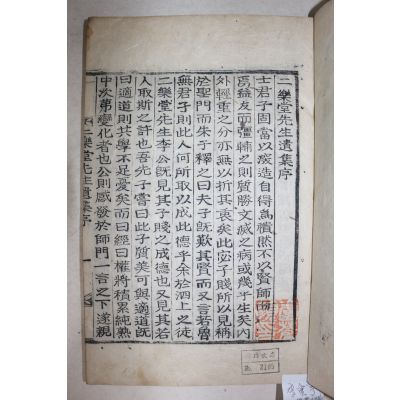 二樂堂先生遺集序
士君子固當以深造自得爲積然不以賢師勝
爲益友而彊輔之則質勝文滅之病或幾乎矣內
外輕重之分亦無以折其衷矣此宓子賤所以見稱
於聖門而朱子釋之曰夫子旣歎其賢而又言若魯
無君子則此人何所取以成此德乎余於泗上之徒
二樂堂先生李公旣見其子賤之成德也又見其若
人取斯之許也吾先子嘗曰此子質美可與適道旣
曰適道則共學不足憂矣而曰經曰權將積累純熟
中次第變化者也公則感發於師門一言之下遂親
二樂堂先生遺集序
2105